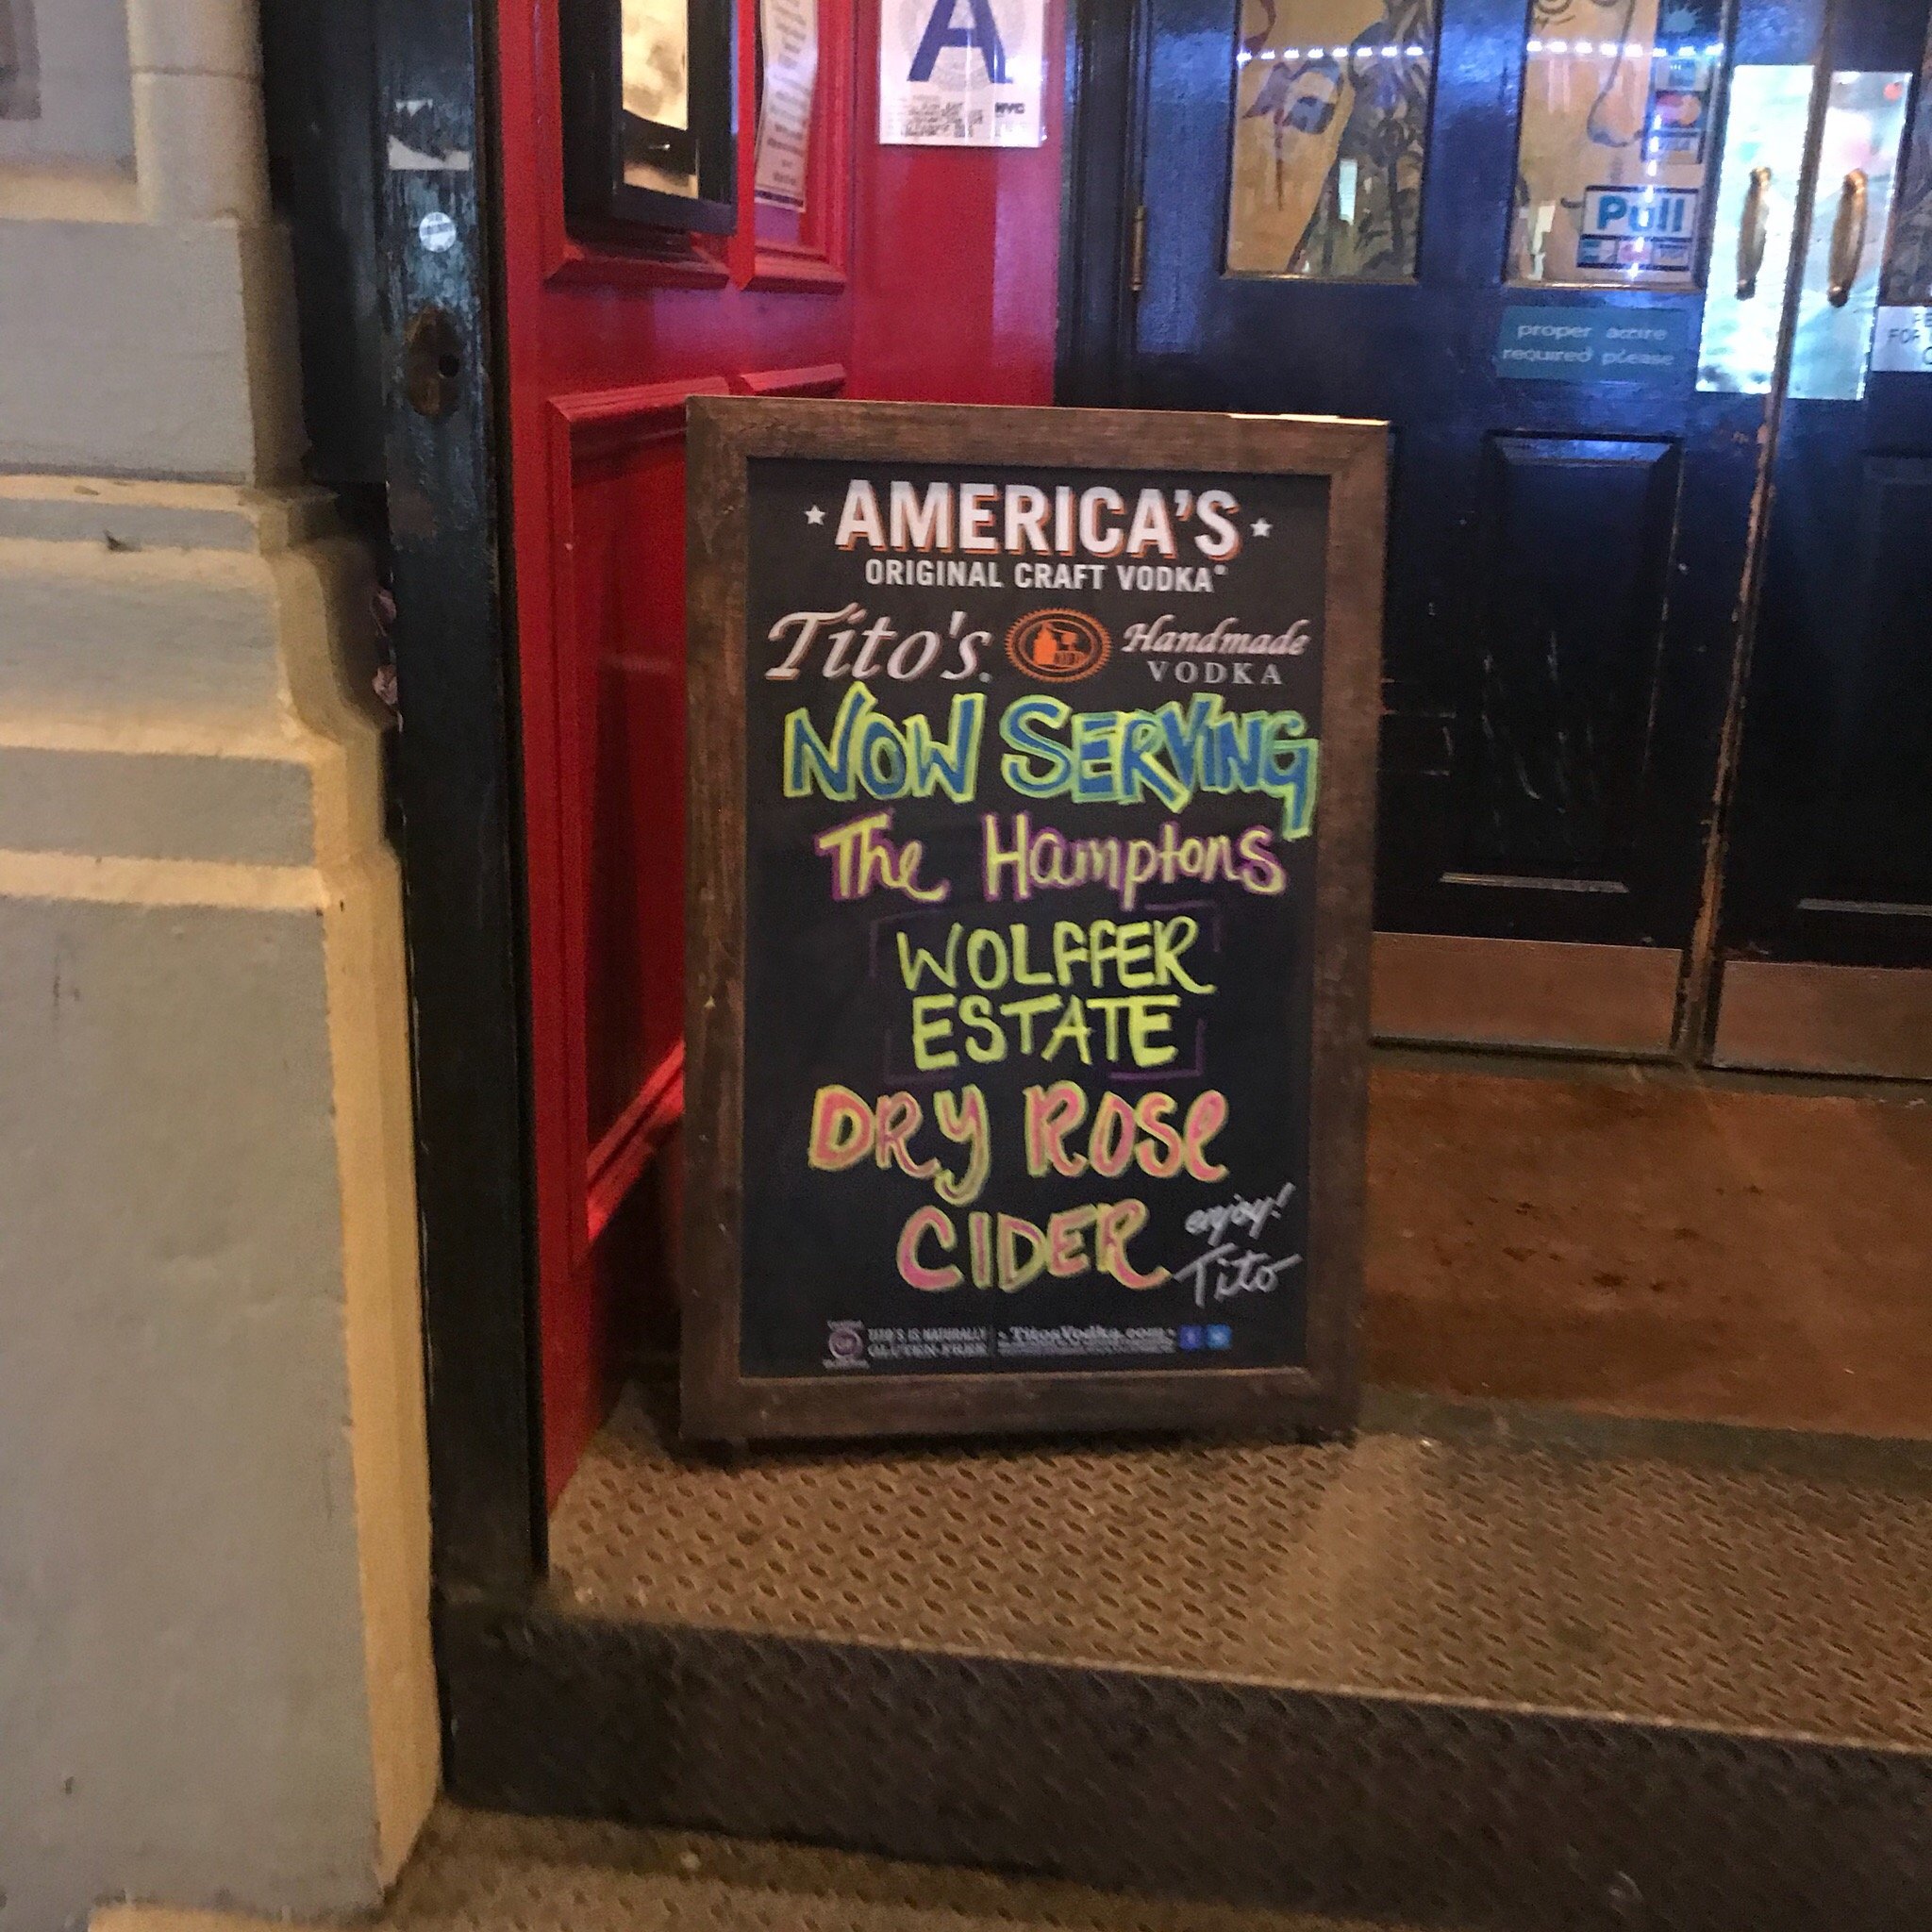 A
NYC
Pull
proper attire
required please
FOR
AMERICA'S
ORIGINAL CRAFT VODKA
Tito's. Handmade
VODKA
NOW SERVING
The Hamptons
WOLFFER
ESTATE
DRY ROSE
CIDER
enjoy!
Tito
TITO'S IS NATURALLY
GLUTEN-FREE
• TitosVodka.com •